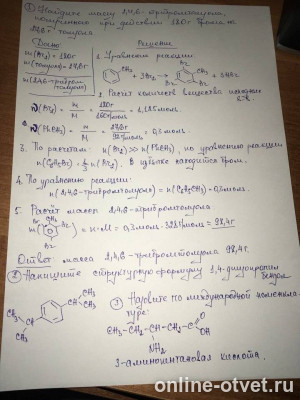 ① Найдите массу 2,4,6-трибромтолуола,
полученного при действии 180г брома на
27,6г толуола
Дано:
Решение
m(Br₂) = 180г
m(толуола) = 27,6г
m(2,4,6-трибром
толуол)
1. Уравнение реакции
CH₃
+ 3Br₂ →
CH₃
Br
Br
Br
+ 3HBr
2. Расчёт количеств вещества
n(Br₂) = m/M = 180г / 160г/моль = 1,125моль
n(PhCH₃) = m/M = 27,6г / 92г/моль = 0,3моль
3. По расчётам: n(Br₂) >> n(PhCH₃), но уравнению реакции
n(C₆H₅Br) = 1/3 n(Br₂). В избытке находится бром.
4. По уравнению реакции:
n(2,4,6-трибромтолуола) = n(C₆H₅CH₃) = 0,3моль.
5. Расчёт массы 2,4,6-трибромтолуола
m( ) = n·M = 0,3моль · 328г/моль = 98,4г
Br
Ответ: масса 2,4,6-трибромтолуола 98,4г.
② Напишите структурную формулу 1,4-диизопропил
бензола
CH₃
CH₃
CH
CH
CH₃
CH₃
③ Назовите по международной номенкла-
туре:
CH₃-CH₂-CH-CH₂-C
O
OH
NH₂
3-аминопентановая кислота.
online-otvet.ru